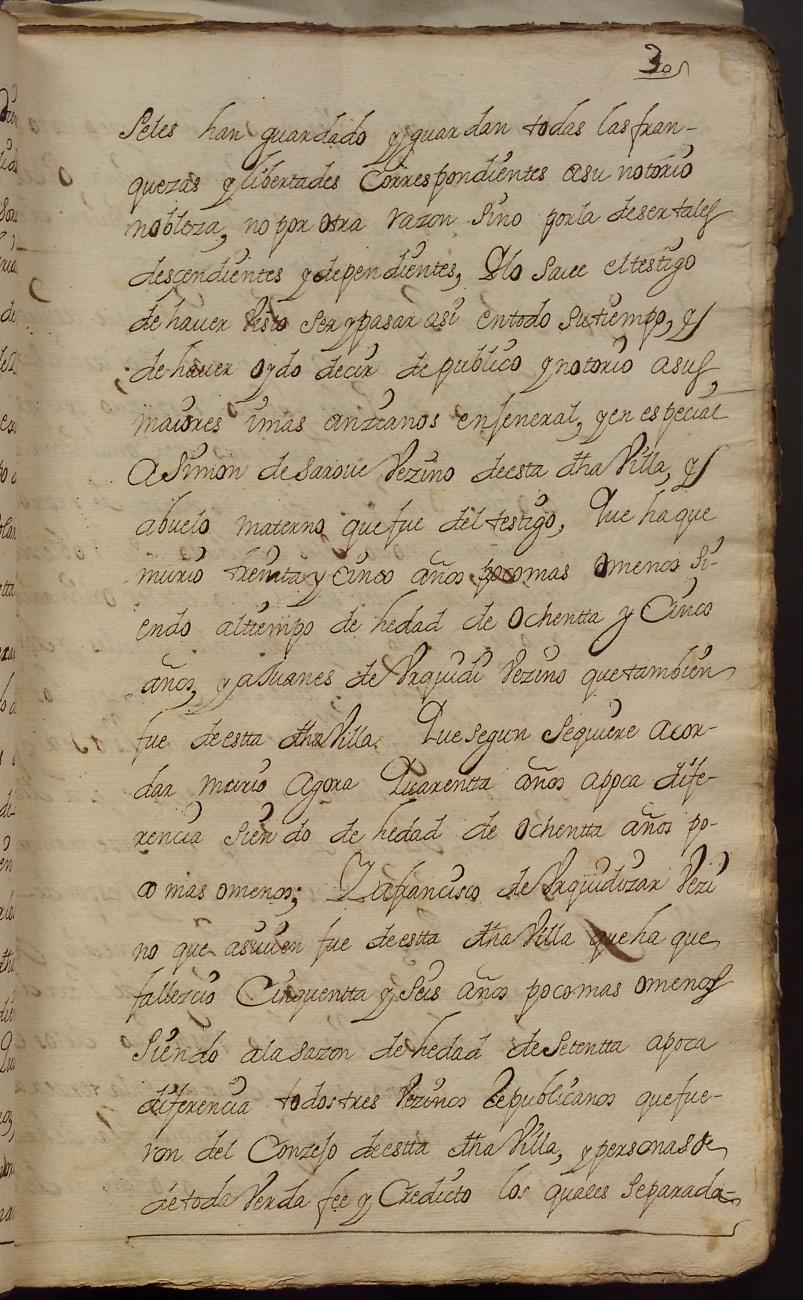 30
seles han guardado y guardan todas las fran-
quezas y libertades Correspondientes asu notorio
nobleza, no por otra razon sino porla deser tales
descendientes y dependientes, Ylo save eltestigo
de haver visto ser y pasar asi entodo su tiempo, y
de haver oydo decir de publico y notorio asus
maiores imas anzianos enjeneral, y en especial
a Simon de Sarove Vezino deesta dha Villa, y
abuelo materno que fue del testigo, Que ha que
murio treinta y Cinco años poco mas omenos Si-
endo altiempo de hedad de Ochentta y Cinco
años, y a Juanes de Urquidi Vezino que tambien
fue deestta dha Villa. Que segun Sequiere acor-
dar murio Agora Quarentta años apoca dife-
rencia Siendo de hedad de Ochentta años po-
co mas omenos; Y afrancisco de Urquidizar Vezi
no que asuvien fue deestta dha Villa que ha que
fallezio Cinquentta y Seis años poco mas omenos
Siendo ala sazon de hedad de Setentta apoca
diferencia todos tres Vezinos Republicanos que fue-
ron del Conzejo deestta dha Villa, y personas de
de toda Verda fee y Credicto los quales Separada-